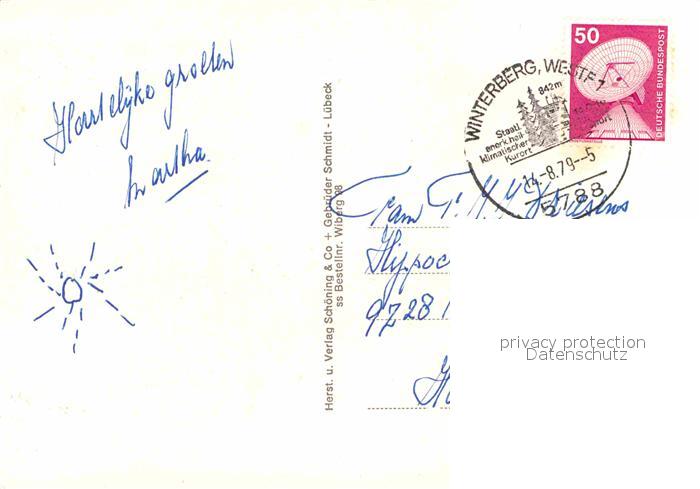 Hartelijke groeten
Martha.
Herst. u. Verlag Schöning & Co + Gebrüder Schmidt - Lübeck
ss Bestellnr. Wiberg 98
50
DEUTSCHE BUNDESPOST
WINTERBERG, WESTF 1
842m
Staatl.
anerk. heil-
klimatischer
Kurort
14.-8.79--5
5788
Fam
Hippoc
9728
privacy protection
Datenschutz